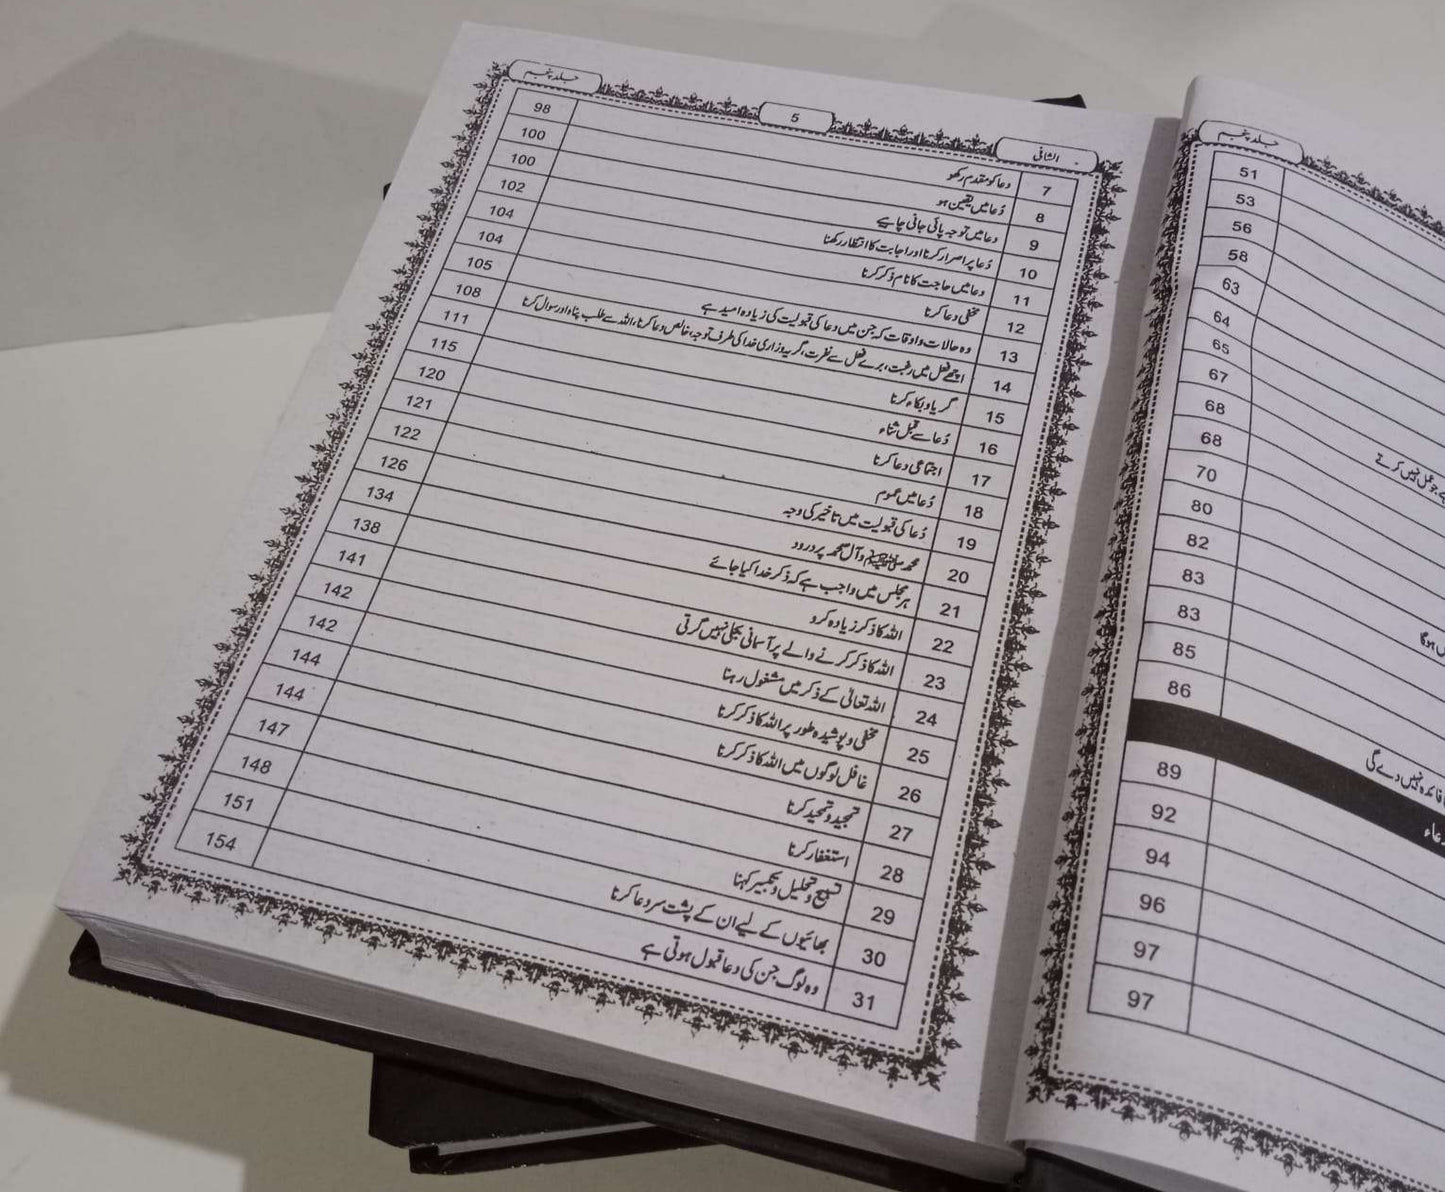 الشافی 5 جلد پنجم
7 دعا کو مقدم رکھو 98
8 دُعا میں یقین ہو 100
9 دعا میں توجہ پائی جانی چاہیے 100
10 دُعا پر اصرار کرنا اور اجابت کا انتظار رکھنا 102
11 دعا میں حاجت کا نام ذکر کرنا 104
12 مخفی دعا کرنا 104
13 وہ حالات و اوقات کہ جن میں دعا کی قبولیت کی زیادہ امید ہے 105
14 اچھے فعل میں رغبت، برے فعل سے نفرت، گریہ وزاری خدا کی طرف توجہ، خالص دعا کرنا، اللہ سے طلب پناہ اور سوال کرنا 108
15 گریہ و بکاء کرنا 111
16 دُعا سے قبل ثناء 115
17 اجتماعی دعا کرنا 120
18 دُعا میں عموم 121
19 دُعا کی قبولیت میں تاخیر کی وجہ 122
20 محمد ﷺ وآل محمد پر درود 126
21 ہر مجلس میں واجب ہے کہ ذکر خدا کیا جائے 134
22 اللہ کا ذکر زیادہ کرو 138
23 اللہ کا ذکر کرنے والے پر آسمانی بجلی نہیں گرتی 141
24 اللہ تعالیٰ کے ذکر میں مشغول رہنا 142
25 مخفی و پوشیدہ طور پر اللہ کا ذکر کرنا 142
26 غافل لوگوں میں اللہ کا ذکر کرنا 144
27 تمجید و تحمید کرنا 144
28 استغفار کرنا 147
29 تسبیح و تحلیل و تکبیر کہنا 148
30 بھائیوں کے لیے ان کے پشت سر دعا کرنا 151
31 وہ لوگ جن کی دعا قبول ہوتی ہے 154
جلد پنجم
51
53
56
58
63
64
65
67
68
68
نہیں کرتے 70
80
82
83
83
85
86
فائدہ نہیں دے گی
89
92
94
96
97
97